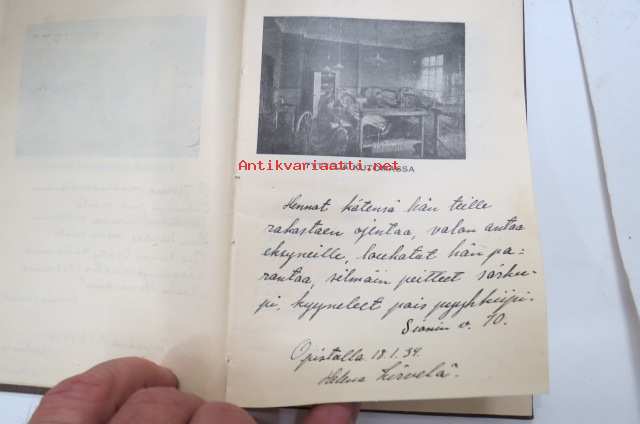 Antikvariaatti.net
KUTOMASSA
Hennot kätensä hän teille
rakastaen ojentaa, valon antaa
eksyneille, loukatut hän pa=
rantaa, silmäin peitteet särku-
pi, kyyneleet pois pyyhkiipi.
Sionin v. 70.
Opistolla 18.1.34.
Helena